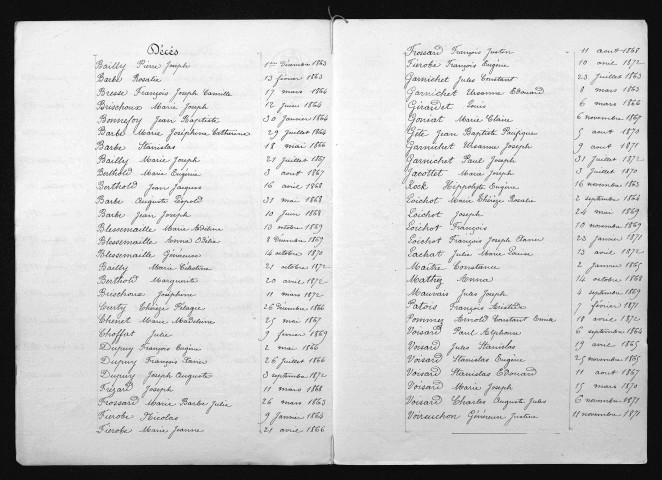 Décès
Bailly Pierre Joseph 1er Décembre 1863
Barbe Rosalie 13 février 1863
Bresse François Joseph Camille 17 mars 1864
Brischoux Marie Joseph 12 juin 1864
Bonnefoy Jean Baptiste 30 Janvier 1864
Barbe Marie Joséphine Catherine 29 Juillet 1864
Barbe Stanislas 18 mai 1866
Bailly Marie Joseph 21 Juillet 1867
Berthold Marie Eugénie 3 aout 1867
Berthold Jean Jacques 16 avril 1868
Barbe Auguste Léopold 31 mai 1868
Barbe Jean Joseph 10 Juin 1868
Blessemaille Marie 13 octobre 1869
Blessemaille Anna Odélie 8 Décembre 1869
Blessemaille Généreuse 14 octobre 1870
Bailly Marie Célestine 21 octobre 1872
Berthold Marguerite 20 avril 1872
Brischoux Joséphine 11 mars 1872
Thérèse Pélagie 26 Décembre 1866
Chenet Marie Madeleine 25 mai 1867
Choffat Julie 9 février 1869
Dupuy François Eugène 2 mai 1866
Dupuy François 26 Juillet 1866
Dupuy Joseph Auguste 3 septembre 1872
Frézard Joseph 11 mars 1868
Frossard Marie Barbe Julie 26 mars 1863
Fierobe Nicolas 9 Janvier 1864
Fierobe Marie Jeanne 21 avril 1866
Frossard François Justin 11 aout 1868
Fierobe François Eugène 10 avril 1872
Garnichet Jules Constant 23 Juillet 1863
Garnichet Ursanne Edouard 8 mars 1863
Girardet Louis 6 mars 1866
Goniat Marie Claire 6 novembre 1867
Gête Jean Baptiste 5 aout 1870
Garnichet Ursanne Joseph 9 aout 1871
Garnichet Paul Joseph 31 Juillet 1872
Jacottet Marie Joseph 3 Juillet 1870
Lock Hippolyte Eugène 16 novembre 1863
Loichot Marie Thérèze Rosalie 2 septembre 1864
Loichot Joseph 24 mai 1869
Loichot François 10 novembre 1869
Loichot François Joseph 23 Janvier 1871
Lachat Julie Marie Louise 13 avril 1872
Maitre Constance 2 Janvier 1865
Mathez Anna 14 octobre 1868
Mauvais Jules Joseph 4 septembre 1869
Patois François Aristide 7 février 1871
Pommez Arnold Constant 18 avril 1872
Voisard Paul Alphonse 6 septembre 1864
Voisard Jules Stanislas 19 avril 1865
Voisard Stanislas Eugène 25 novembre 1865
Voisard Stanislas Edouard 11 aout 1867
Voisard Marie Joseph 15 mars 1870
Voisard Charles Auguste Jules 6 novembre 1871
Voirsuchon Génereux Justine 11 novembre 1871